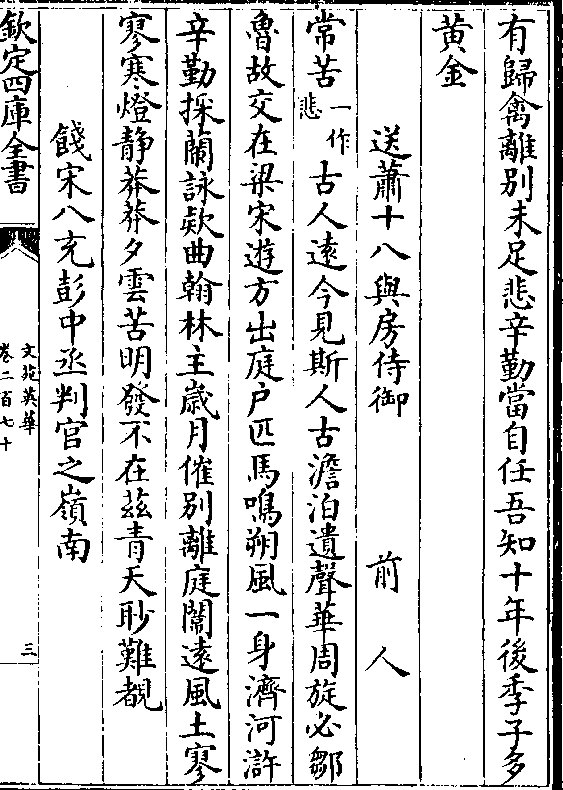 有歸禽離別未足悲辛勤當自任吾知十年後季子多
黄金
送蕭十八與房侍御 前人
常苦一作悲古人遠今見斯人古澹泊遺聲華周旋必鄒
魯故交在梁宋遊方出庭户匹馬鳴朔風一身濟河滸
辛勤採蘭詠欵曲翰林主歲月催別離庭闈遠風土寥
寥寒燈静莽莽夕雲苦明發不在兹青天眇難覩
餞宋八充彭中丞判官之嶺南
欽定四庫全書
文苑英華
卷二百七十
三